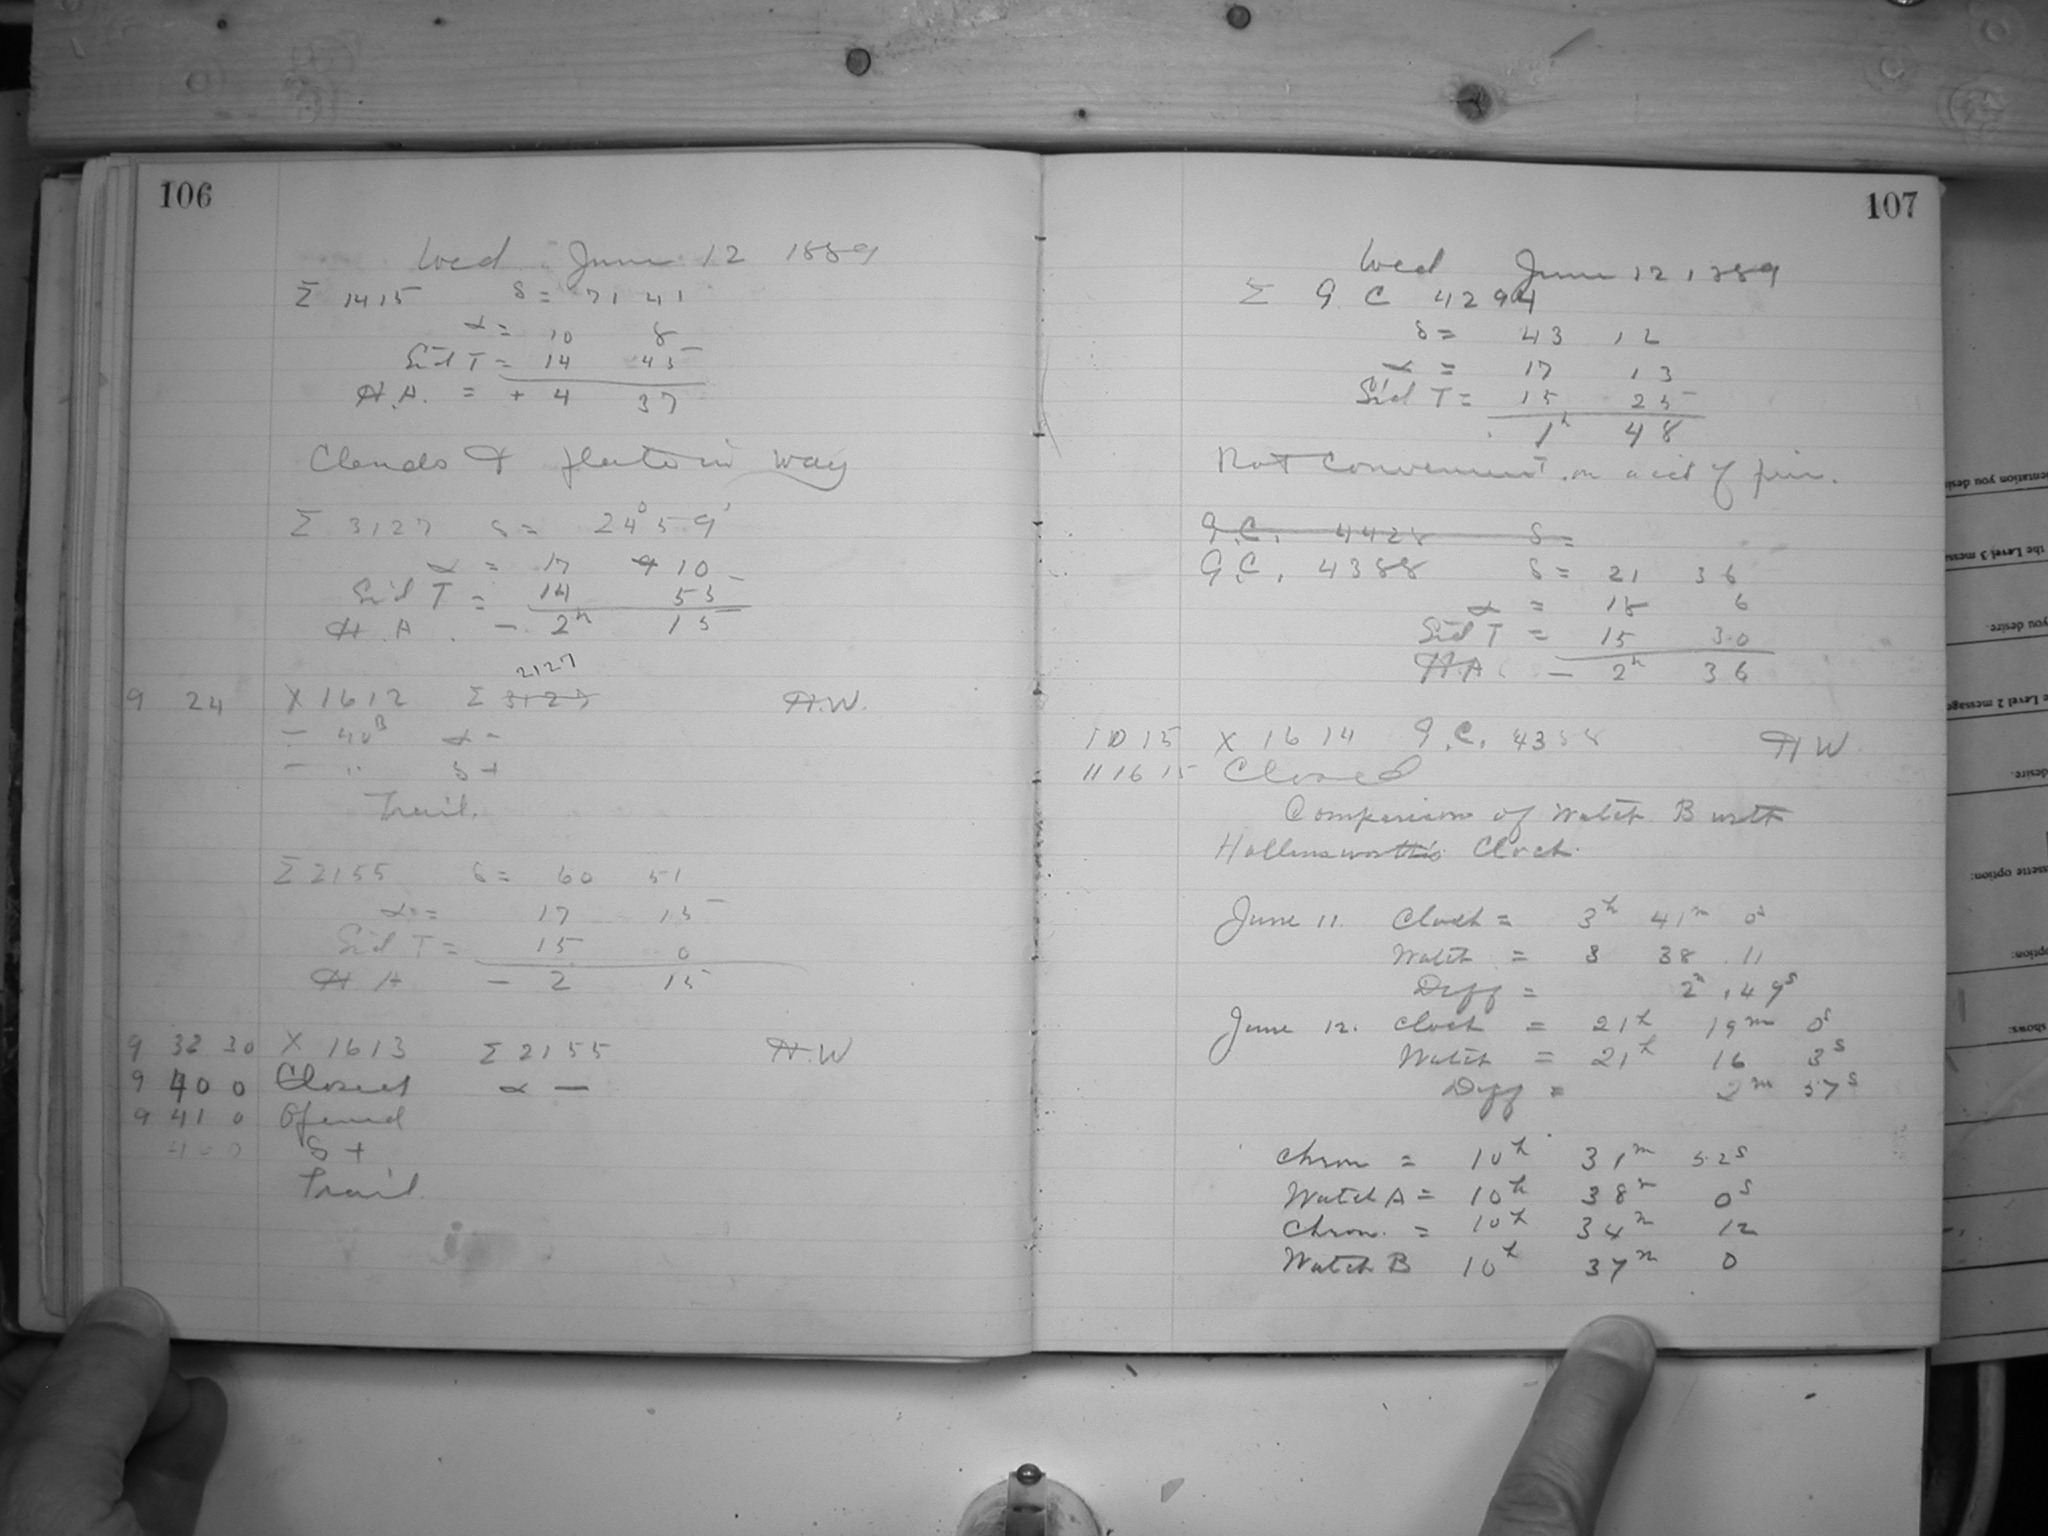 106
Wed June 12 1889
Σ 1415 δ = 71 41
α = 10 8
Sid T = 14 45
H.A. = + 4 37
Clouds & in way
Σ 3127 δ = 24° 59'
α = 17 9 10
Sid T = 14 55
H.A. - 2h 15
2127
9 24 X 1612 Σ 3127 H.W.
- 40B α -
- " δ +
Trail.
Σ 2155 δ = 60 51
α = 17 15
Sid T = 15 0
H A - 2 15
9 32 30 X 1613 Σ 2155 H.W
9 40 0 Closed α -
9 41 0 Opened
400 δ +
Trail.
107
Wed June 12 1889
Σ G C 4294
δ = 43 12
α = 17 13
Sid T = 15 25
1h 48
Not convenient on acct of pier.
G.C. 4428 δ =
G.C. 4388 δ = 21 36
α = 18 6
Sid T = 15 30
H.A. - 2h 36
10 15 X 1614 G.C. 4388 H W
11 16 15 Closed
Comparison of Watch B with
Hollinsworth's Clock.
June 11. Clock = 3h 41m 0s
Watch = 3 38 11
Diff = 2m 49s
June 12. Clock = 21h 19m 0s
Watch = 21h 16 3s
Diff = 2m 57s
Chron = 10h 31m 52s
Watch A = 10h 38m 0s
Chron. = 10h 34m 12
Watch B 10h 37m 0
entation you desi
the Level 3 messa
you desire.
e Level 2 message
desire.
ssette option:
option:
shows: